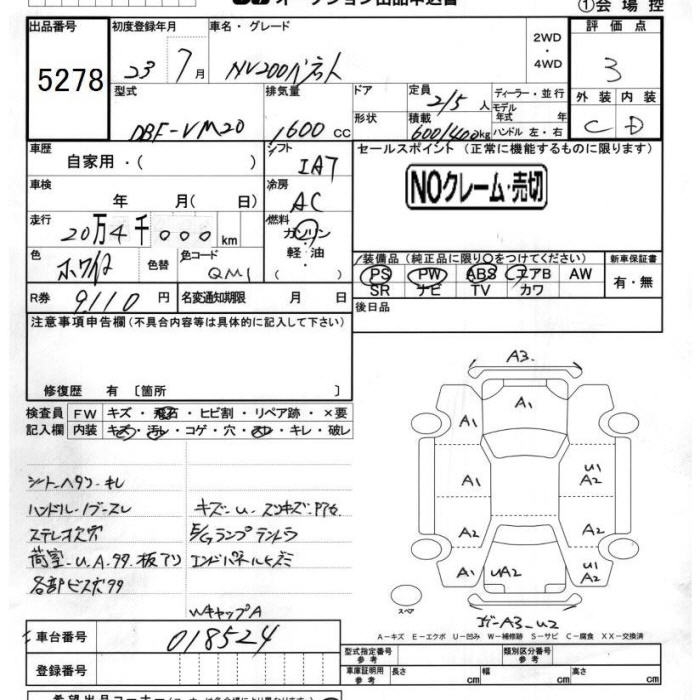 オークション出品申込書
①会場控
出品番号 初度登録年月 車名・グレード 2WD・4WD 評価点
5278 23 7月 NV200バネット 3
型式 排気量 ドア 定員 ディーラー・並行 外装 内装
DBF-VM20 1600 CC 形状 2/5人 モデル年式 年式 C D
積載 600/400kg ハンドル 左・右
車歴 シフト セールスポイント (正常に機能するものに限ります)
自家用・( ) IAT
NOクレーム・売切
車検 冷房
年 月( 日) AC
走行 燃料
20万4千000km ガソリン・軽・油 ( )
色 色替 色コード 装備品(純正品に限り○をつけてください) 新車保証書
ホワイト QM1 PS PW ABS エアB AW 有・無
SR ナビ TV カワ
R券 9110円 名変通知期限 月 日 後日品
注意事項申告欄(不具合内容等は具体的に記入して下さい)
修復歴 有 〔箇所 〕
検査員 FW キズ・飛石・ヒビ割・リペア跡・×要
記入欄 内装 キズ・汚レ・コゲ・穴・スレ・キレ・破レ
シートヘタリ・キレ
ハンドル・ノブスレ キズ・U・スリキズ・
ステレオ欠穴 E/Gランプテントウ
荷室-U.A.99.板アリ エンドパネルヒズミ
各部ビス穴99
WキャップA
A3.
A1
A1
A1
A1
U1
A2
A2
A2
A1
UA2
A2
スペア
A3-U2
A-キズ E-エクボ U-凹み W-補修跡 S-サビ C-腐食 XX-交換済
車台番号 018524
型式指定番号 参考 類別区分番号 参考
登録番号
車庫証明用 参考 長さ cm 幅 cm 高さ cm
希望出品コーナー